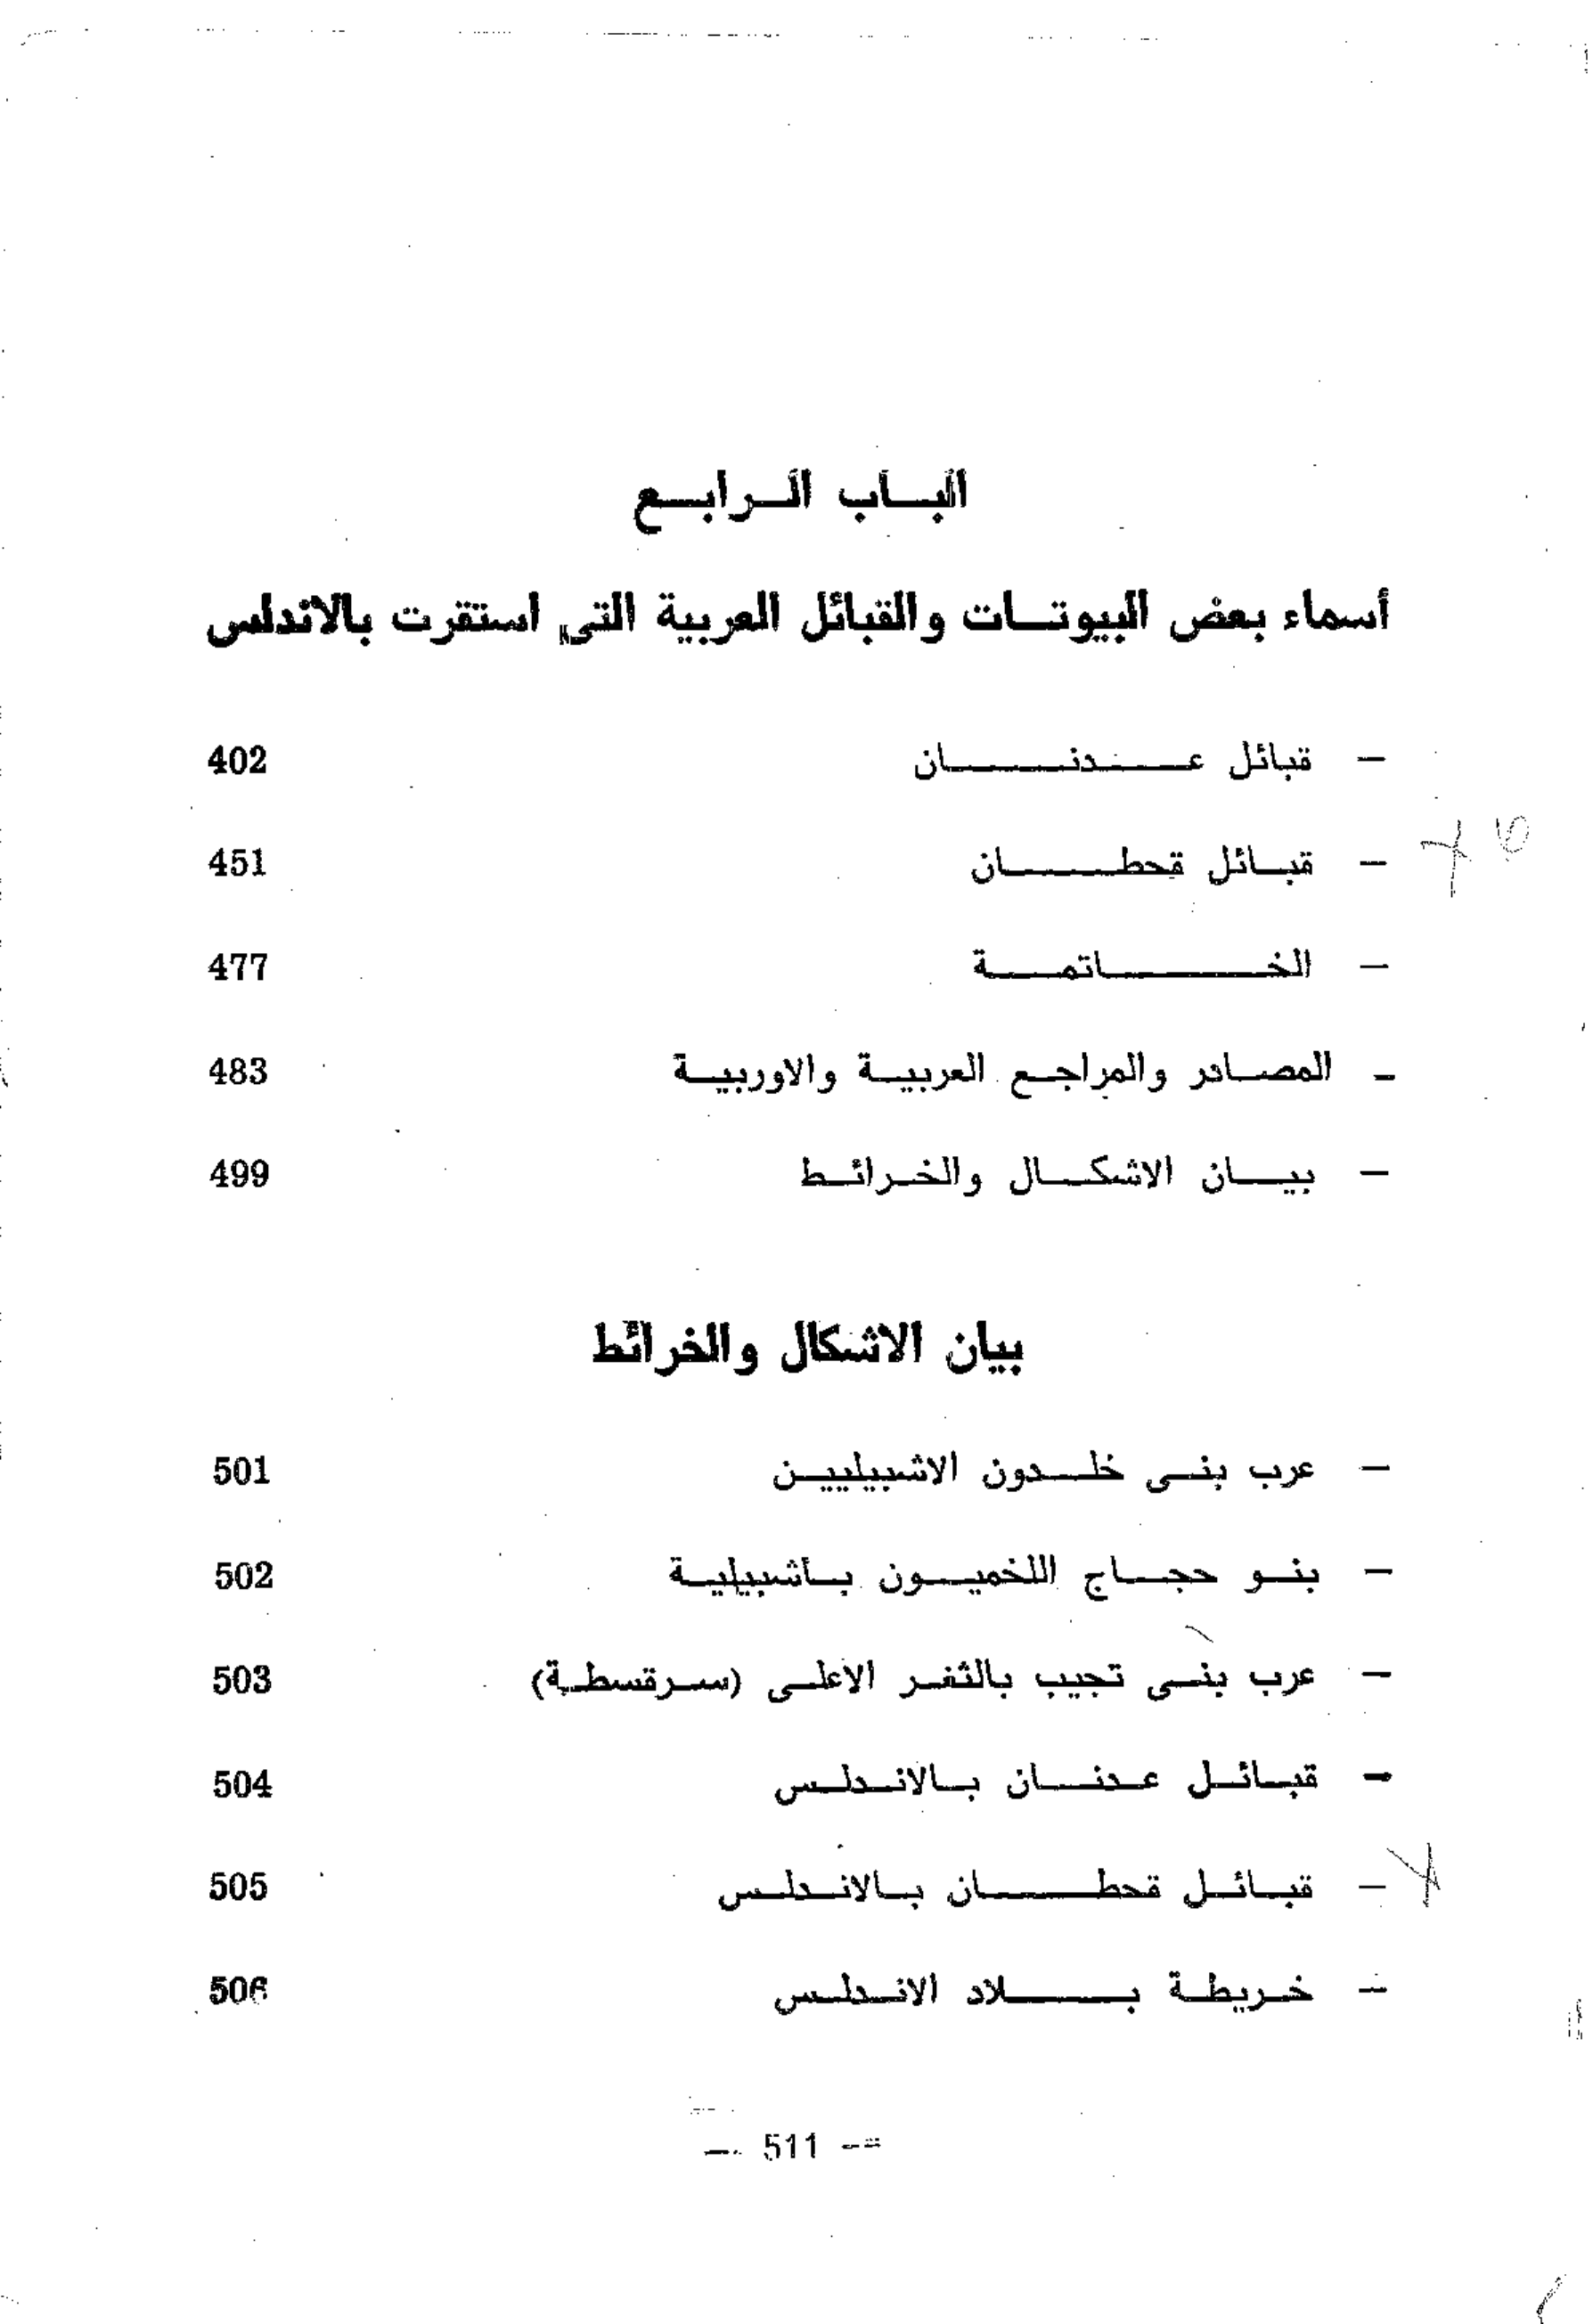 الباب الرابع
أسماء بعض البيوتات والقبائل العربية التى استقرت بالاندلس
— قبائل عدنان 402
— قبائل قحطان 451
— الخاتمة 477
— المصادر والمراجع العربية والاوربية 483
— بيان الاشكال والخرائط 499
بيان الاشكال والخرائط
— عرب بنى خلدون الاشبيليين 501
— بنو حجاج اللخميون بأشبيلية 502
— عرب بنى تجيب بالثغر الاعلى (سرقسطة) 503
— قبائل عدنان بالاندلس 504
— قبائل قحطان بالاندلس 505
— خريطة بلاد الاندلس 506
— 511 —